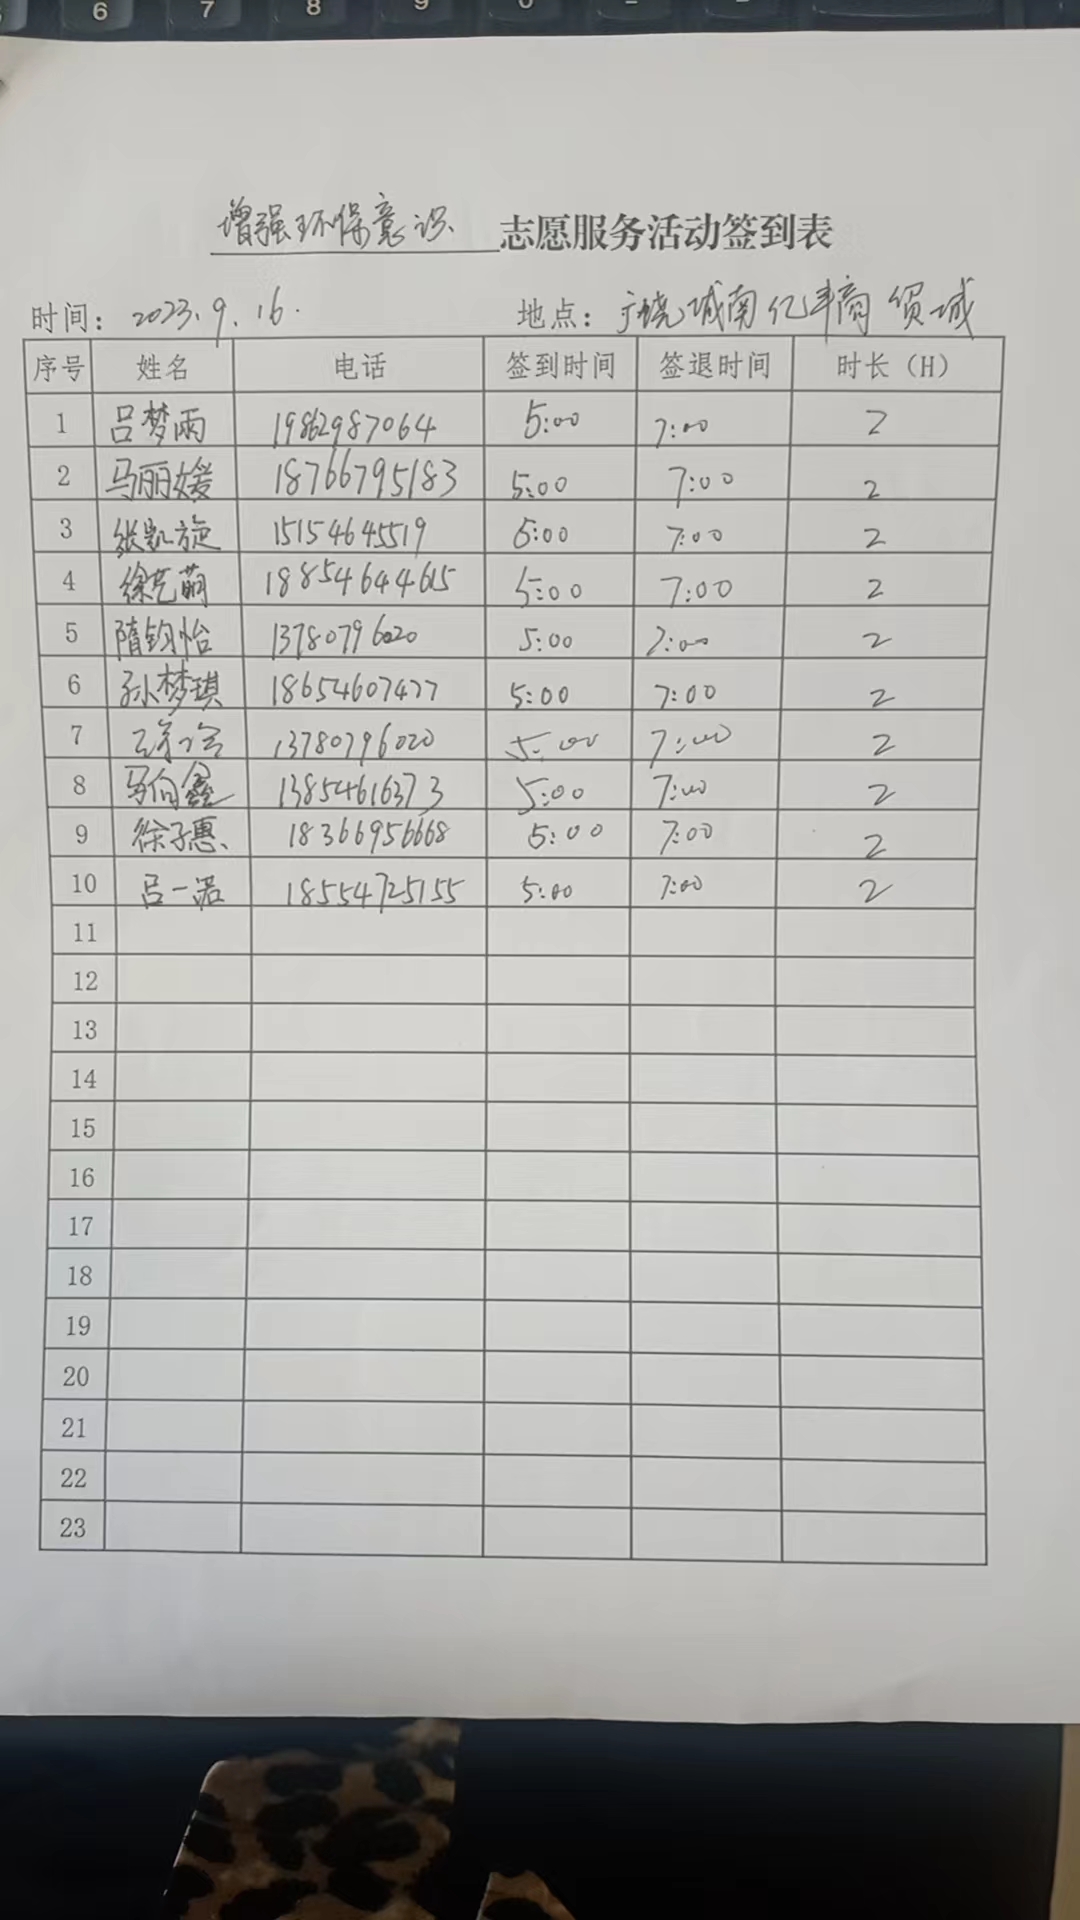 6 7 8 9 0
增强环保意识 志愿服务活动签到表
时间：2023.9.16. 地点：广饶城南亿丰商贸城
序号 姓名 电话 签到时间 签退时间 时长（H）
1 吕梦雨 19862987064 5:00 7:00 2
2 马丽媛 18766795183 5:00 7:00 2
3 张凯旋 15154645519 5:00 7:00 2
4 徐艺萌 18854644615 5:00 7:00 2
5 隋钧怡 13780796020 5:00 7:00 2
6 孙梦琪 18654607477 5:00 7:00 2
7 13780796020 5:00 7:00 2
8 马向鑫 13854616373 5:00 7:00 2
9 徐子惠 18366956668 5:00 7:00 2
10 吕一诺 18554725155 5:00 7:00 2
11
12
13
14
15
16
17
18
19
20
21
22
23